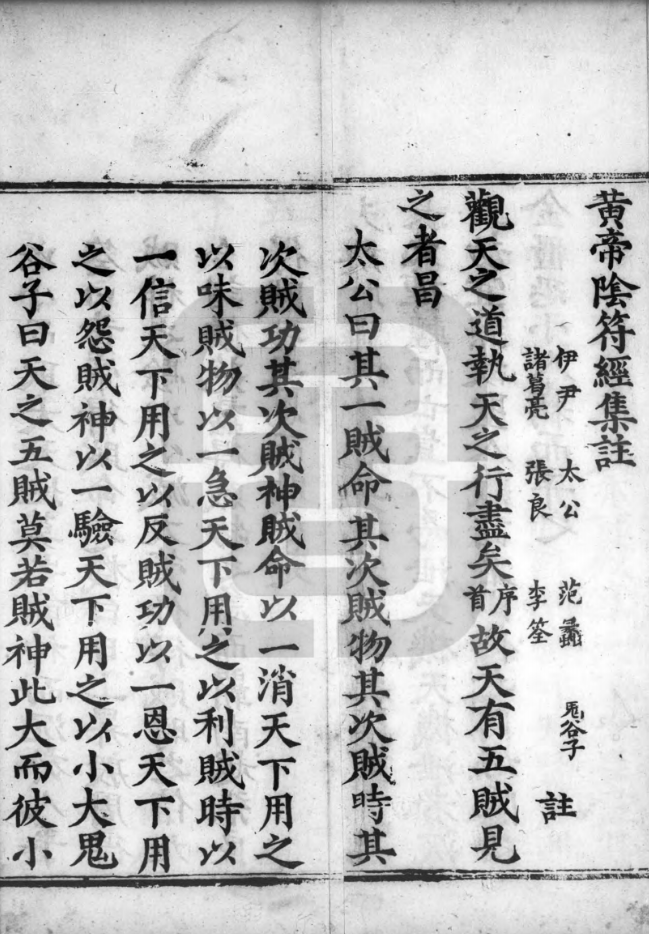 黄帝陰符經集註
伊尹 太公 范蠡 鬼谷子
諸葛亮 張良 李筌 註
觀天之道執天之行盡矣序首故天有五賊見
之者昌
太公曰其一賊命其次賊物其次賊時其
次賊功其次賊神賊命以一消天下用之
以味賊物以一急天下用之以利賊時以
一信天下用之以反賊功以一恩天下用
之以怨賊神以一驗天下用之以小大鬼
谷子曰天之五賊莫若賊神此大而彼小